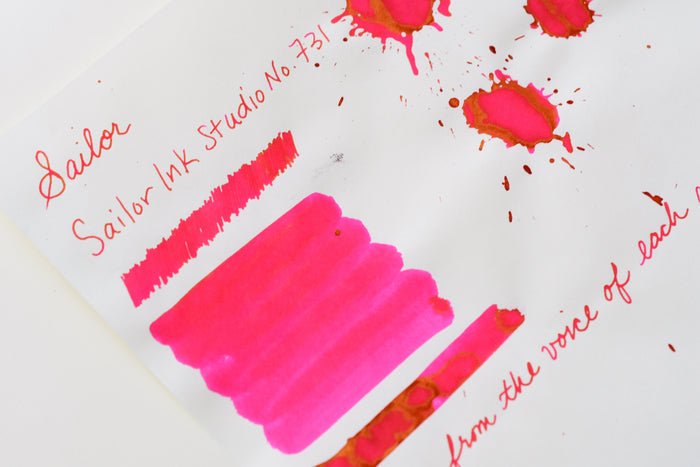 Sailor
Sailor Ink Studio No. 731
from the voice of each